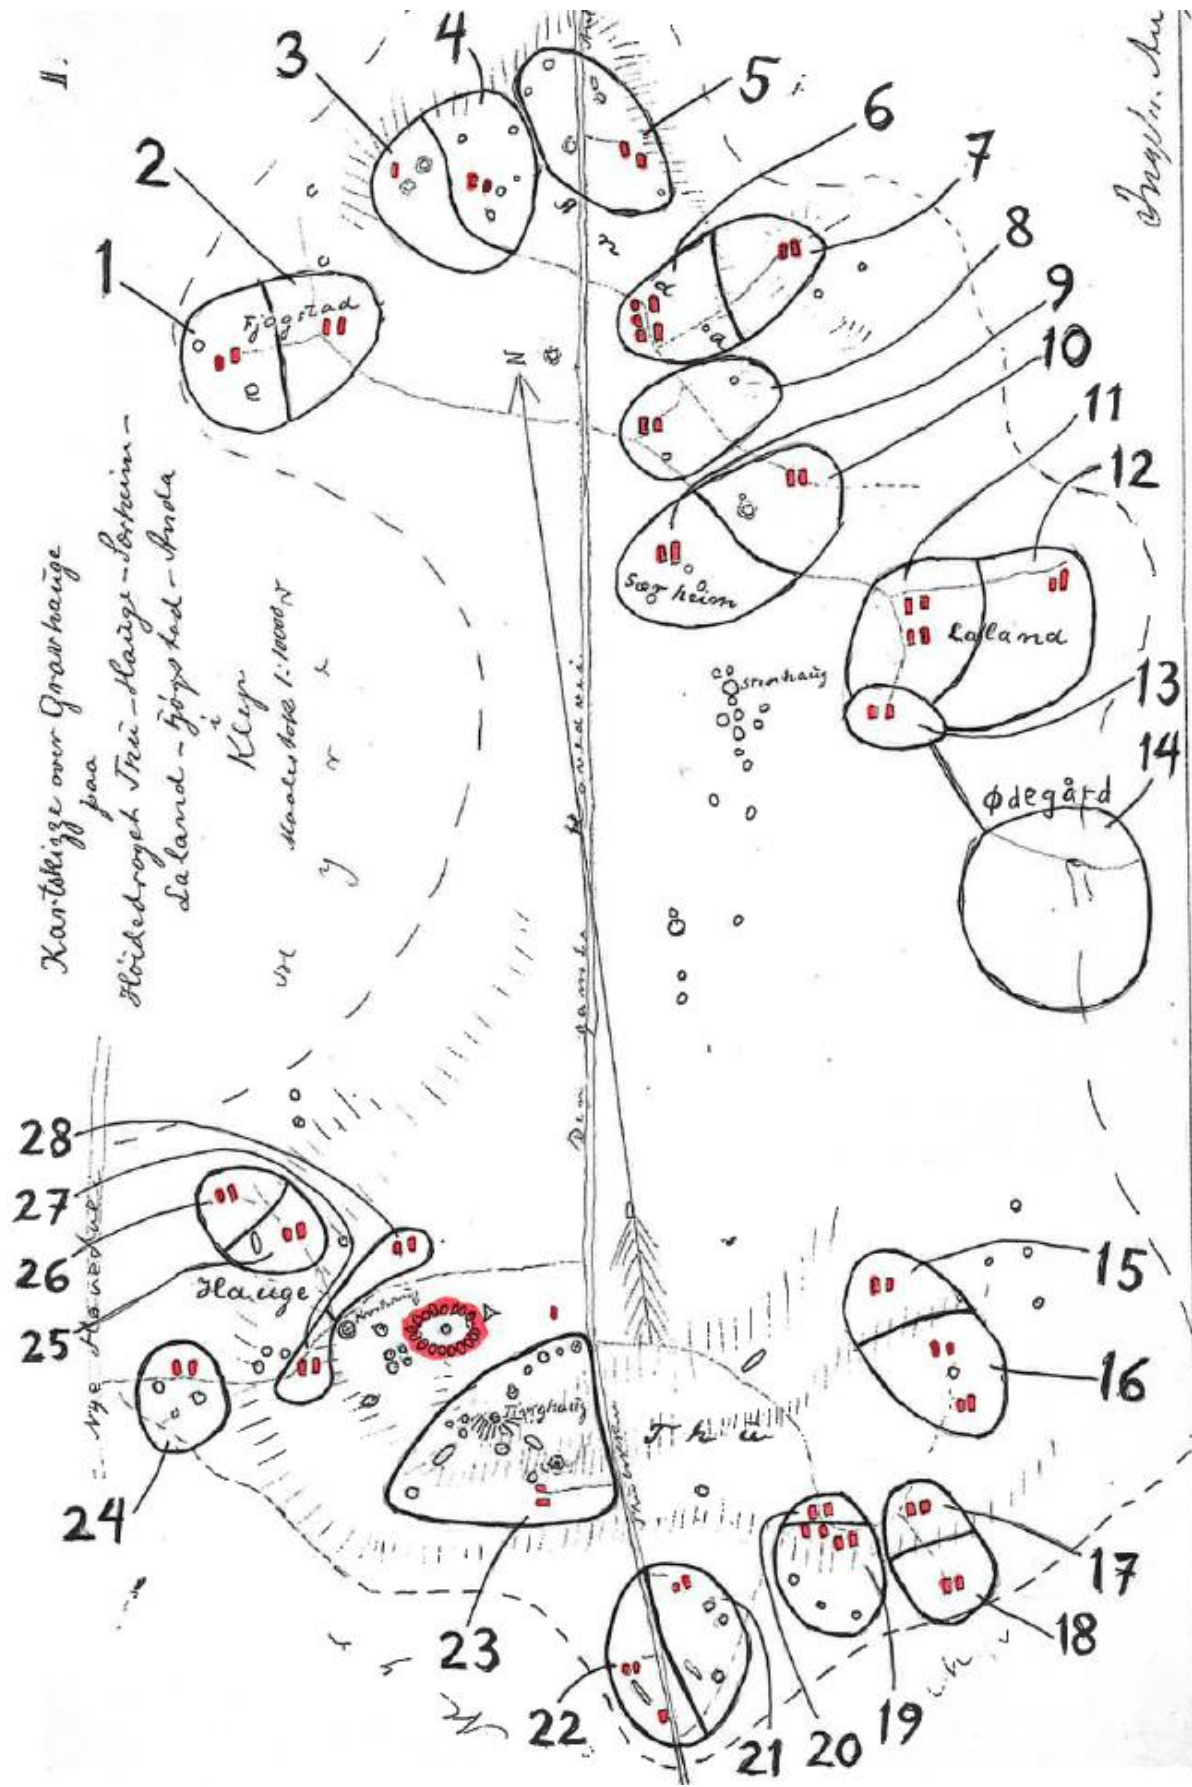 II.
Kartskizze over Gravhauge
paa
Höidedroget Tru-Hauge-Sörheim-
Laland-Fjögstad-Anda
i
Klep
Maalestok 1:10000
1
2
3
4
5
6
7
8
9
10
11
12
13
14
15
16
17
18
19
20
21
22
23
24
25
26
27
28
Fjøgstad
N
Særheim
Laland
Ødegård
Stenhaug
Den gamle Hovedvei
M y r e
Nye Hovedvei
Hauge
Krosshaug
Tinghaug
T h u